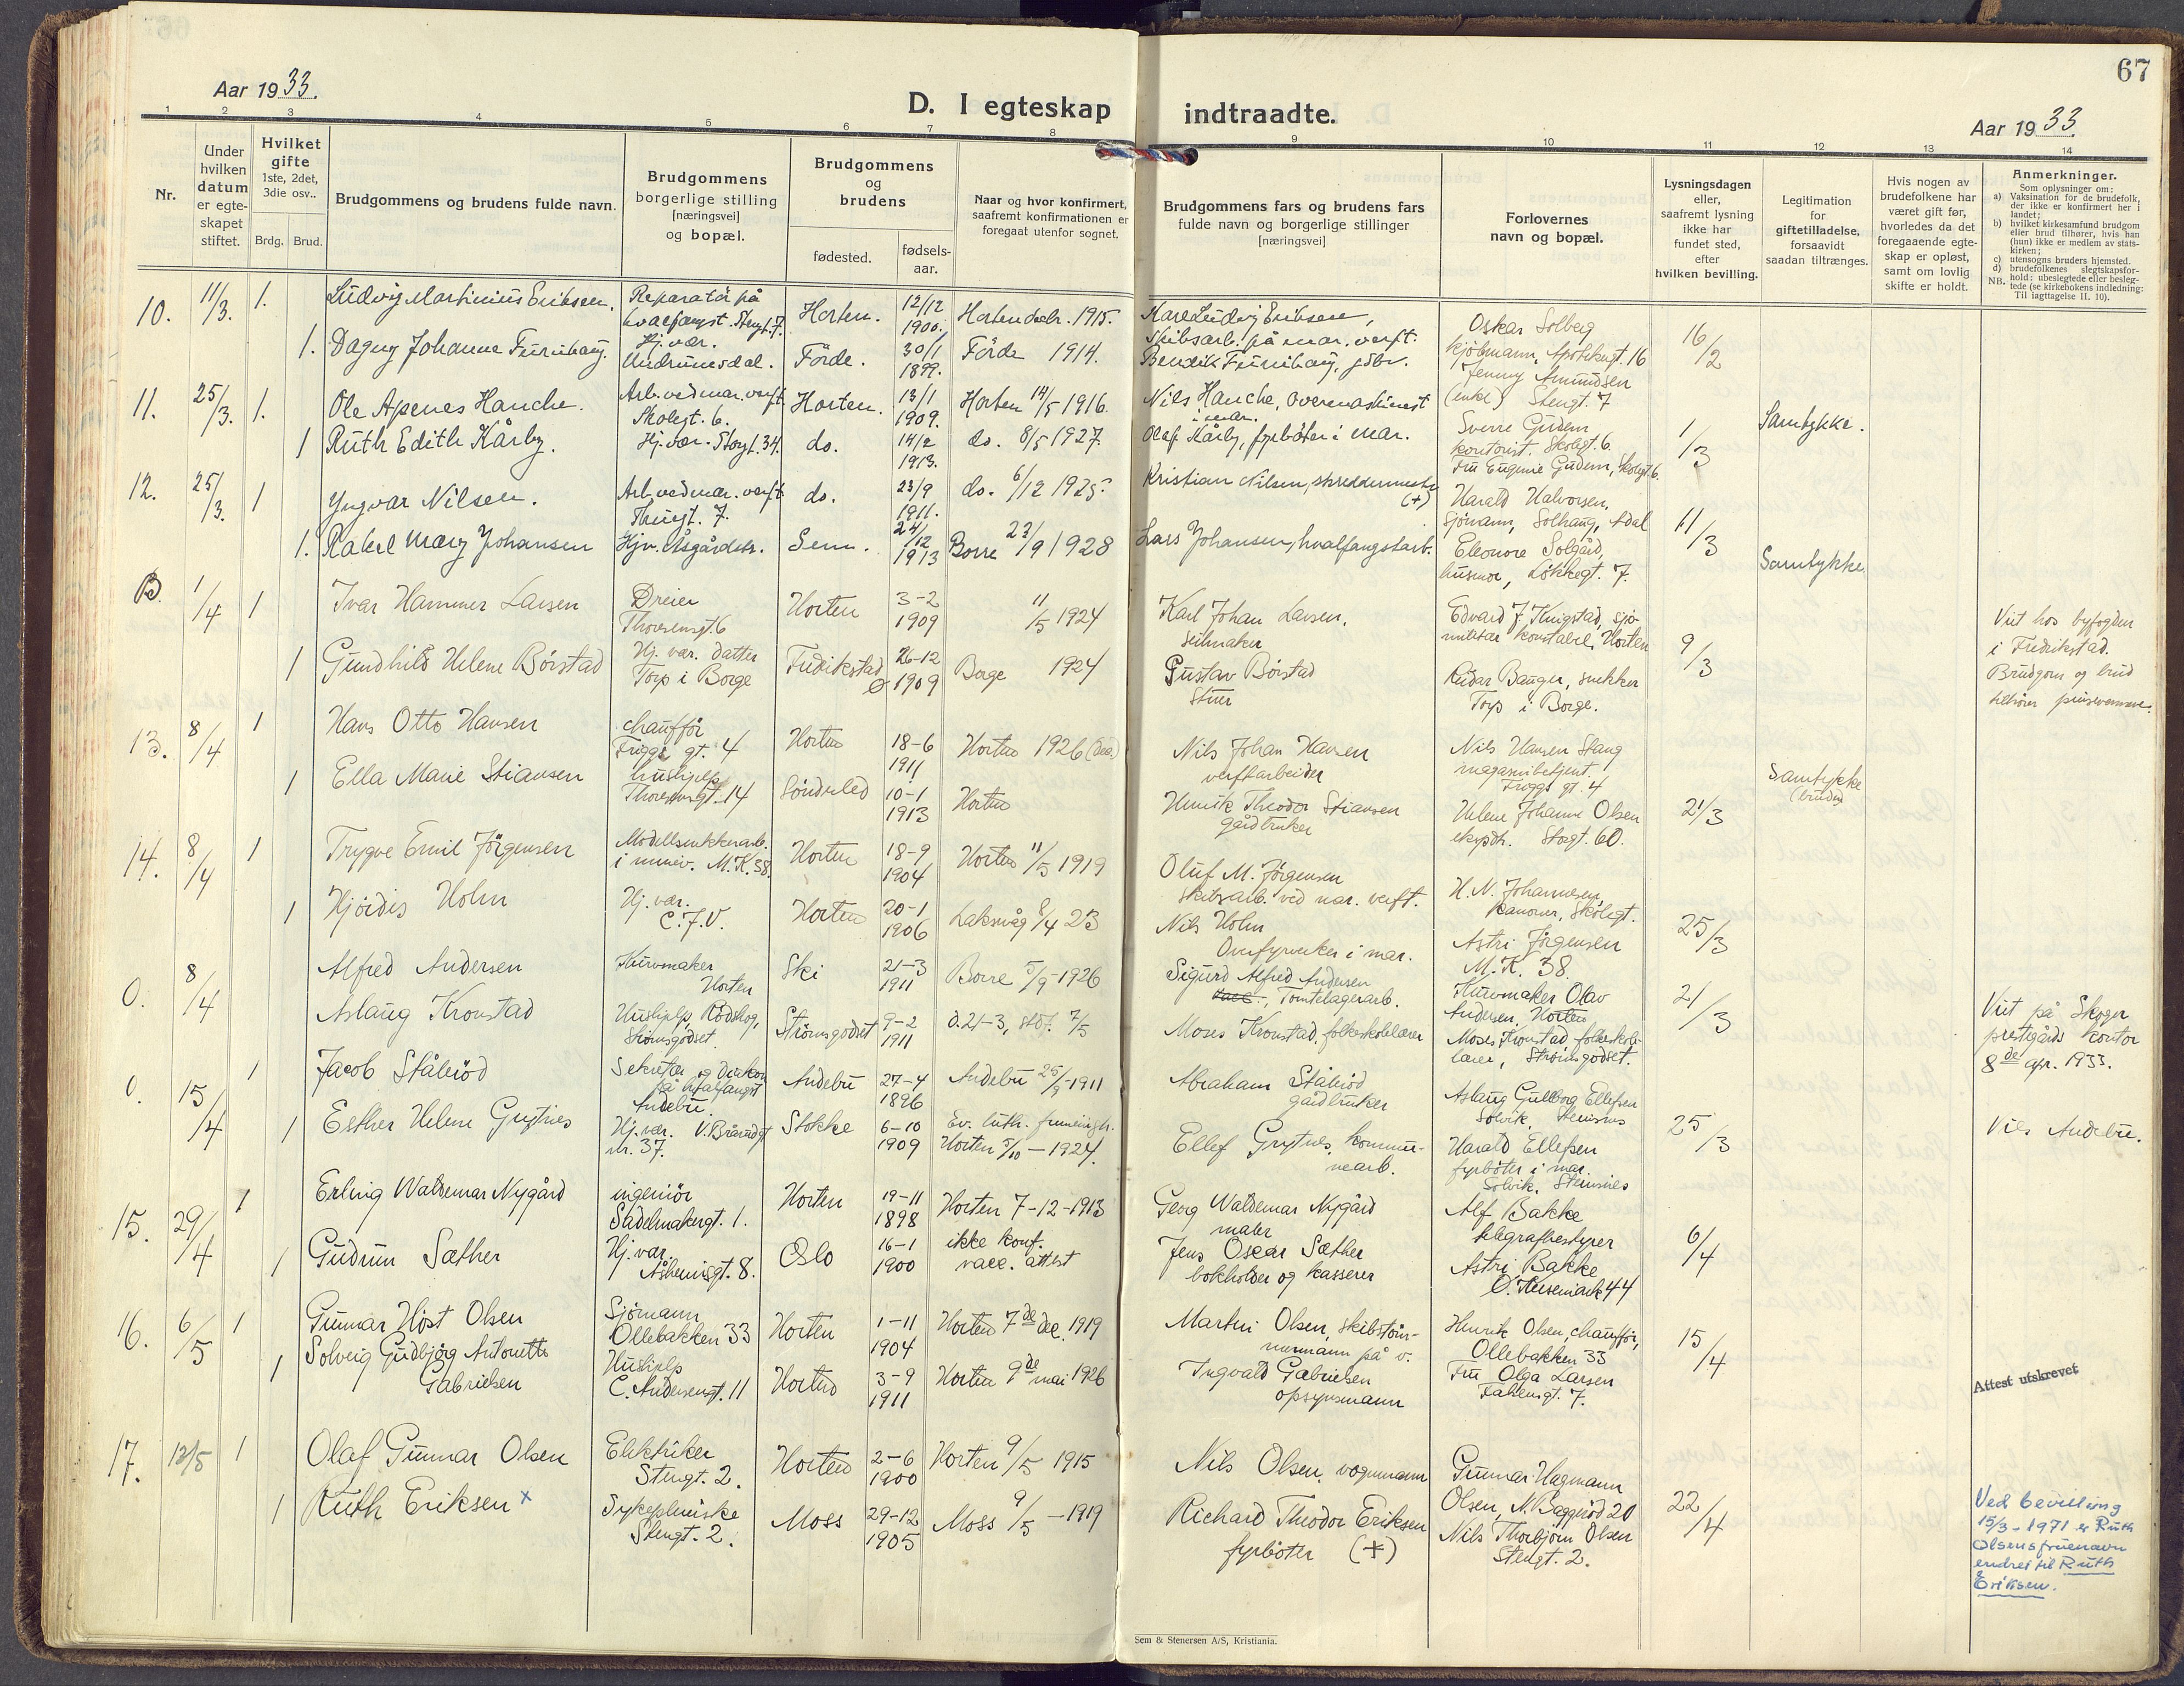 67
Aar 1933.
D. I egteskap indtraadte.
Aar 1933
1 2 3 4 5 6 7 8 9 10 11 12 13 14
Nr.
Under hvilken datum er egte-skapet stiftet.
Hvilket gifte 1ste, 2det, 3die osv..
Brdg. Brud.
Brudgommens og brudens fulde navn.
Brudgommens borgerlige stilling [næringsvei] og bopæl.
Brudgommens og brudens
fødested.
fødsels-aar.
Naar og hvor konfirmert, saafremt konfirmationen er foregaat utenfor sognet.
Brudgommens fars og brudens fars fulde navn og borgerlige stillinger [næringsvei]
Forlovernes navn og bopæl.
Lysningsdagen eller, saafremt lysning ikke har fundet sted, efter hvilken bevilling.
Legitimation for giftetilladelse, forsaavidt saadan tiltrænges.
Hvis nogen av brudefolkene har været gift før, hvorledes da det foregaaende egte-skap er opløst, samt om lovlig skifte er holdt.
Anmerkninger.
Som oplysninger om:
a) Vaksination for de brudefolk, der ikke er konfirmert her i landet;
b) hvilket kirkesamfund brudgom eller brud tilhører, hvis han (hun) ikke er medlem av stats-kirken;
c) utensogns bruders hjemsted.
d) brudefolkenes slegtskapsfor-hold: ubeslegtede eller besleg-tede (se kirkebokens indledning:
NB. Til iagttagelse II. 10).
10. 11/3. 1. Ludvig Martinius Eriksen. Reparatör på hvalfangst. Stengt. 7. Horten. 12/12 1900. Horten 1915. Karl Ludvig Eriksen, Skibsarb. på mar. verft. Oskar Solberg kjöbmann, Apotekergt. 16 16/2
1. Dagny Johanne Furuhaug. Hj. vær. Undrumsdal. Förde. 30/1 1899. Förde 1914. Bendik Furuhaug, gdbr. Jenny Amundsen (enke) Stengt. 7
11. 25/3. 1. Ole Apenes Hanche. Arb. ved mar. verft Skolegt. 6. Horten. 13/1 1909. Horten 14/5 1916. Nils Hanche, overmaskinist i mar. Sverre Gudem kontorist. Skolegt. 6. 1/3 Samtykke.
1 Ruth Edith Kårby. Hj. vær. Storgt. 34. do. 14/2 1913. do. 8/5 1927. Olaf Kårby, fyrböter i mar. Fru Eugenie Gudem, Skolegt. 6.
12. 25/3. 1 Yngvar Nilsen. Arb. ved mar. verft Thuegt. 7. do. 23/9 1911. do. 6/12 1925. Kristian Nilsen, skreddermester (+) Harald Halvorsen, Sjömann, Solhaug, Adal 11/3
1. Rakel Mary Johansen Hjv. Åsgårdstr. Sem. 24/12 1913 Borre 23/9 1928 Lars Johansen, hvalfangstarb. Eleonore Solgård, husmor, Løkkegt. 7. Samtykke.
1/4 1 Ivar Hammer Larsen Dreier Thoresensgt. 6 Horten 3-2 1909 11/5 1924 Karl Johan Larsen, Seilmaker Edvard J. sjö-militær konstabel, Horten 9/3 Viet hos byfogden i Fredrikstad. Brudgom og brud tilhører pinsevennene.
1 Gundhild Helene Börstad Hj. vær. datter Torp i Borge Fredrikstad 26-12 1909 Borge 1924 Gustav Börstad Stuer Reidar Bauger, snekker Torp i Borge.
13. 8/4 1 Hans Otto Hansen chauffør Frøgs gt. 4 Horten 18-6 1911 Horten 1926 (des) Nils Johan Hansen verftarbeider Nils Hansen Stang magasinbetjent. Frøgs gt. 4 21/3
1 Ella Marie Stiansen hushjelp Thoresensgt. 14 Söndeled 10-1 1913 Horten Henrik Theodor Stiansen gårdbruker Helene Johanne Olsen ekspedtr. Storgt. 60. Samtykke (bruden)
14. 8/4 1 Trygve Emil Jörgensen Modellsnekkerarb. M.K. 38. Horten 18-9 1904 Horten 11/5 1919 Oluf M. Jörgensen Skibsarb. ved mar. verft. H. N. Johannesen, Kanoner, Skolegt. 25/3
1 Hjördis Holm Hj. vær. C.J.V. Horten 20-1 1906 Laksevåg 8/4 23 Nils Holm Overfyrverker i mar. Astri Jörgensen M.K. 38.
0. 8/4 Alfred Andersen Kurvmaker Horten Ski 21-3 1911 Borre 5/9-1926 Sigurd Alfred Andersen Tomtelagerarb. Kurvmaker Olav Andersen, Horten 21/3 Viet på Skoger prestegårds kontor 8de apr. 1933.
Aslaug Kronstad Hushjelp Rödskog, Strömsgodset. Strömsgodset 9-2 1911 d. 21-3, 7/5 Moses Kronstad, folkeskolelærer Moses Kronstad folkeskole-lærer, Strömsgodset.
0. 15/4 1 Jacob Ståleröd Sekretær og diakon på hvalfangst Andebu. Andebu 27-4 1896 Andebu 25/-1911 Abraham Ståleröd gårdbruker Aslaug Gulborg Ellefsen Solvik, Steinsnes 25/3 Viet Andebu.
1 Esther Helene Grytnes Hj. vær. V. Brårudgt nr. 37. Stokke 6-10 1909 Ev. luth. frimenigh. Horten 5/10-1924. Ellef Grytnes, kommu-nearb. Harald Ellefsen fyrböter i mar. Solvik, Steinsnes
15. 29/4 1 Erling Waldemar Nygård ingeniör Sadelmakergt. 1. Horten 19-11 1898 Horten 7-12-1913 Georg Waldemar Nygård maler Alf Bakke telegrafbestyrer 6/4
1 Gudrun Sæther Hj. vær. Åsheimsgt. 8. Oslo 16-1 1900 ikke konf. vacc. attest Jens Oscar Sæther bokholder og kasserer Astri Bakke O. Husemark 44
16. 6/5 1 Gunnar Höst Olsen Sjömann Ollebakken 33 Horten 1-11 1904 Horten 7de dec. 1919 Martin Olsen, skibstöm-mermann på v. Henrik Olsen, chauffør, Ollebakken 33 15/4
1 Solveig Gudbjörg Antonette Gabrielsen Hushjelp C. Andersensgt. 11 Horten 3-9 1911 Horten 9de mai 1926 Ingvald Gabrielsen opsynsmann Fru Olga Larsen Falsensgt. 7. Attest utskrevet
17. 13/5 1 Olaf Gunnar Olsen Elektriker Stengt. 2. Horten 2-6 1900 Horten 9/5 1915 Nils Olsen, vognmann Gunnar Hagmann Olsen, N. Baggerød 20 22/4
1 Ruth Eriksen x Sykepleierske Stengt. 2. Moss 29-12 1905 Moss 9/5-1919 Richard Theodor Eriksen fyrböter (+) Nils Thorbjörn Olsen Stengt. 2.
Ved bevilling 15/3-1971 er Ruth Olsens fruenavn endret til Ruth Eriksen.
Sem & Stenersen A/S, Kristiania.